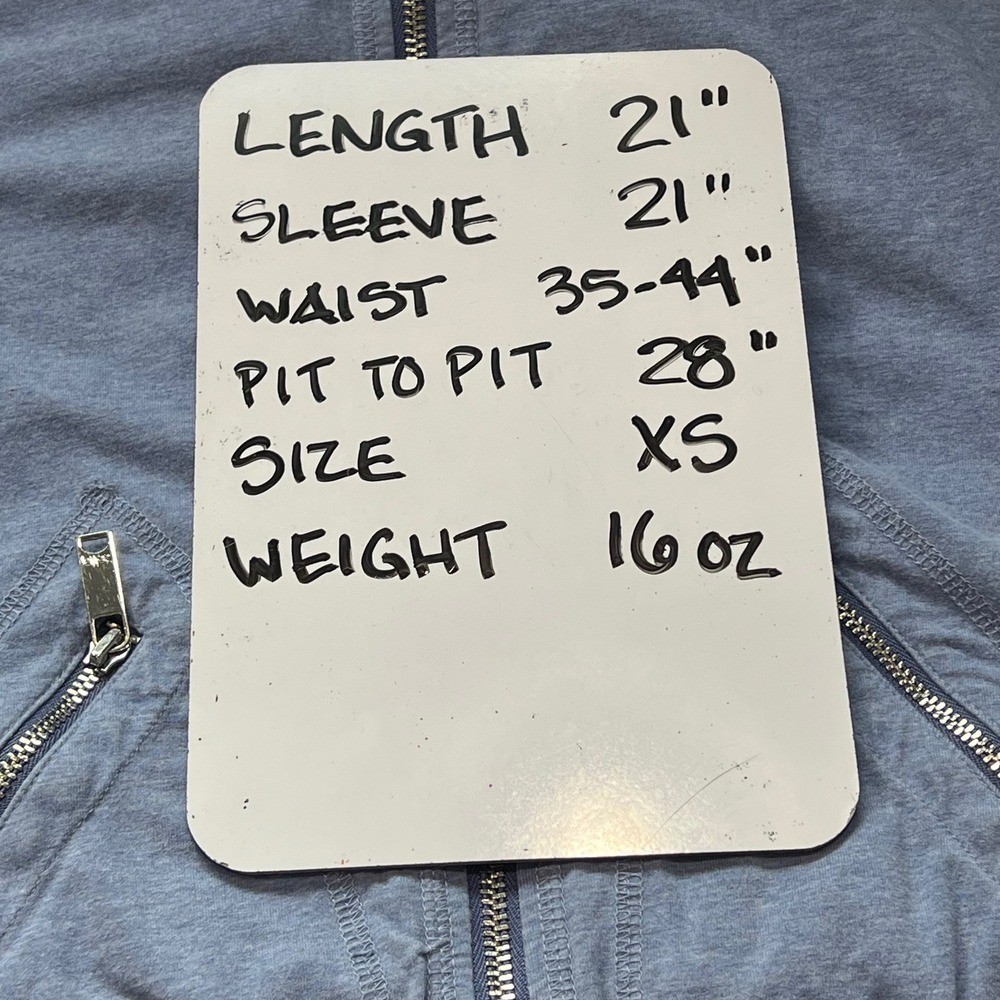 LENGTH 21"
SLEEVE 21"
WAIST 35-44"
PIT TO PIT 28"
SIZE XS
WEIGHT 16 OZ